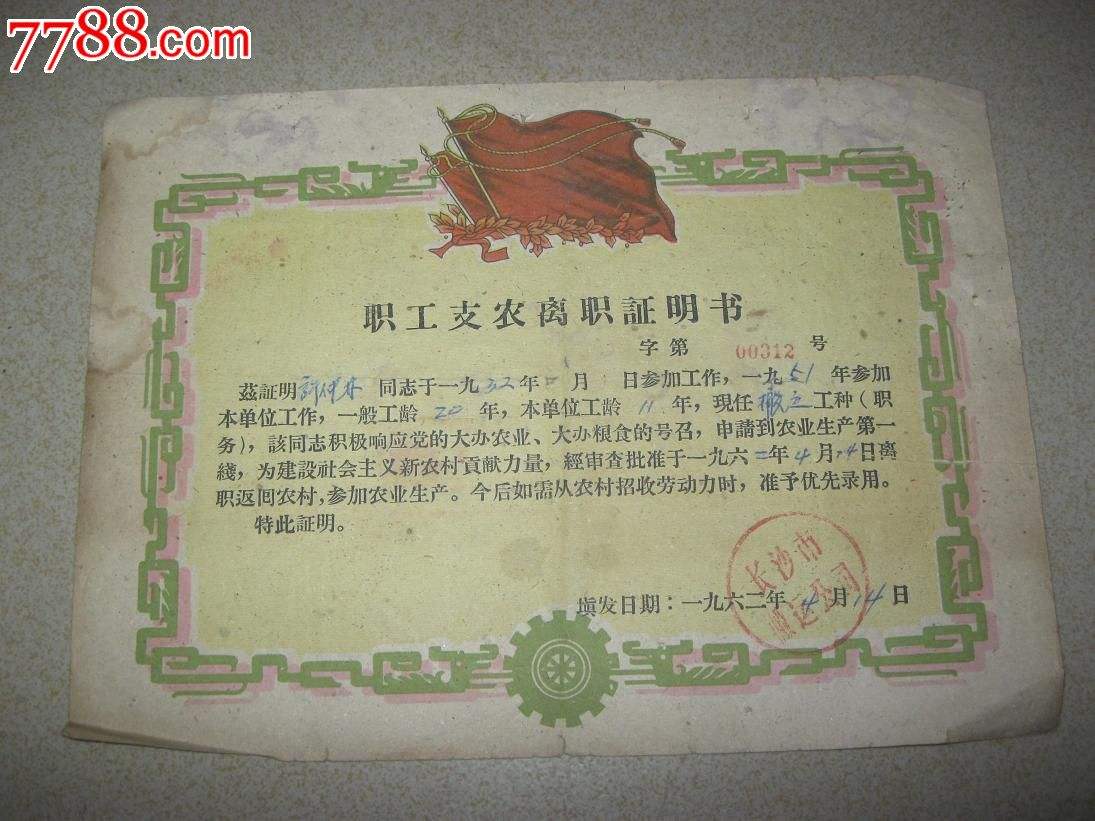 7788.com
职工支农离职証明书
字第 00312 号
茲証明 同志于一九三二年 月 日参加工作，一九51年参加
本单位工作，一般工龄20年，本单位工龄11年，現任搬运工种（职
务），該同志积极响应党的大办农业、大办粮食的号召，申請到农业生产第一
綫，为建設社会主义新农村貢献力量，經审查批准于一九六二年4月14日离
职返回农村，参加农业生产。今后如需从农村招收劳动力时，准予优先录用。
特此証明。
长沙市
搬运公司
塡发日期：一九六二年4月14日